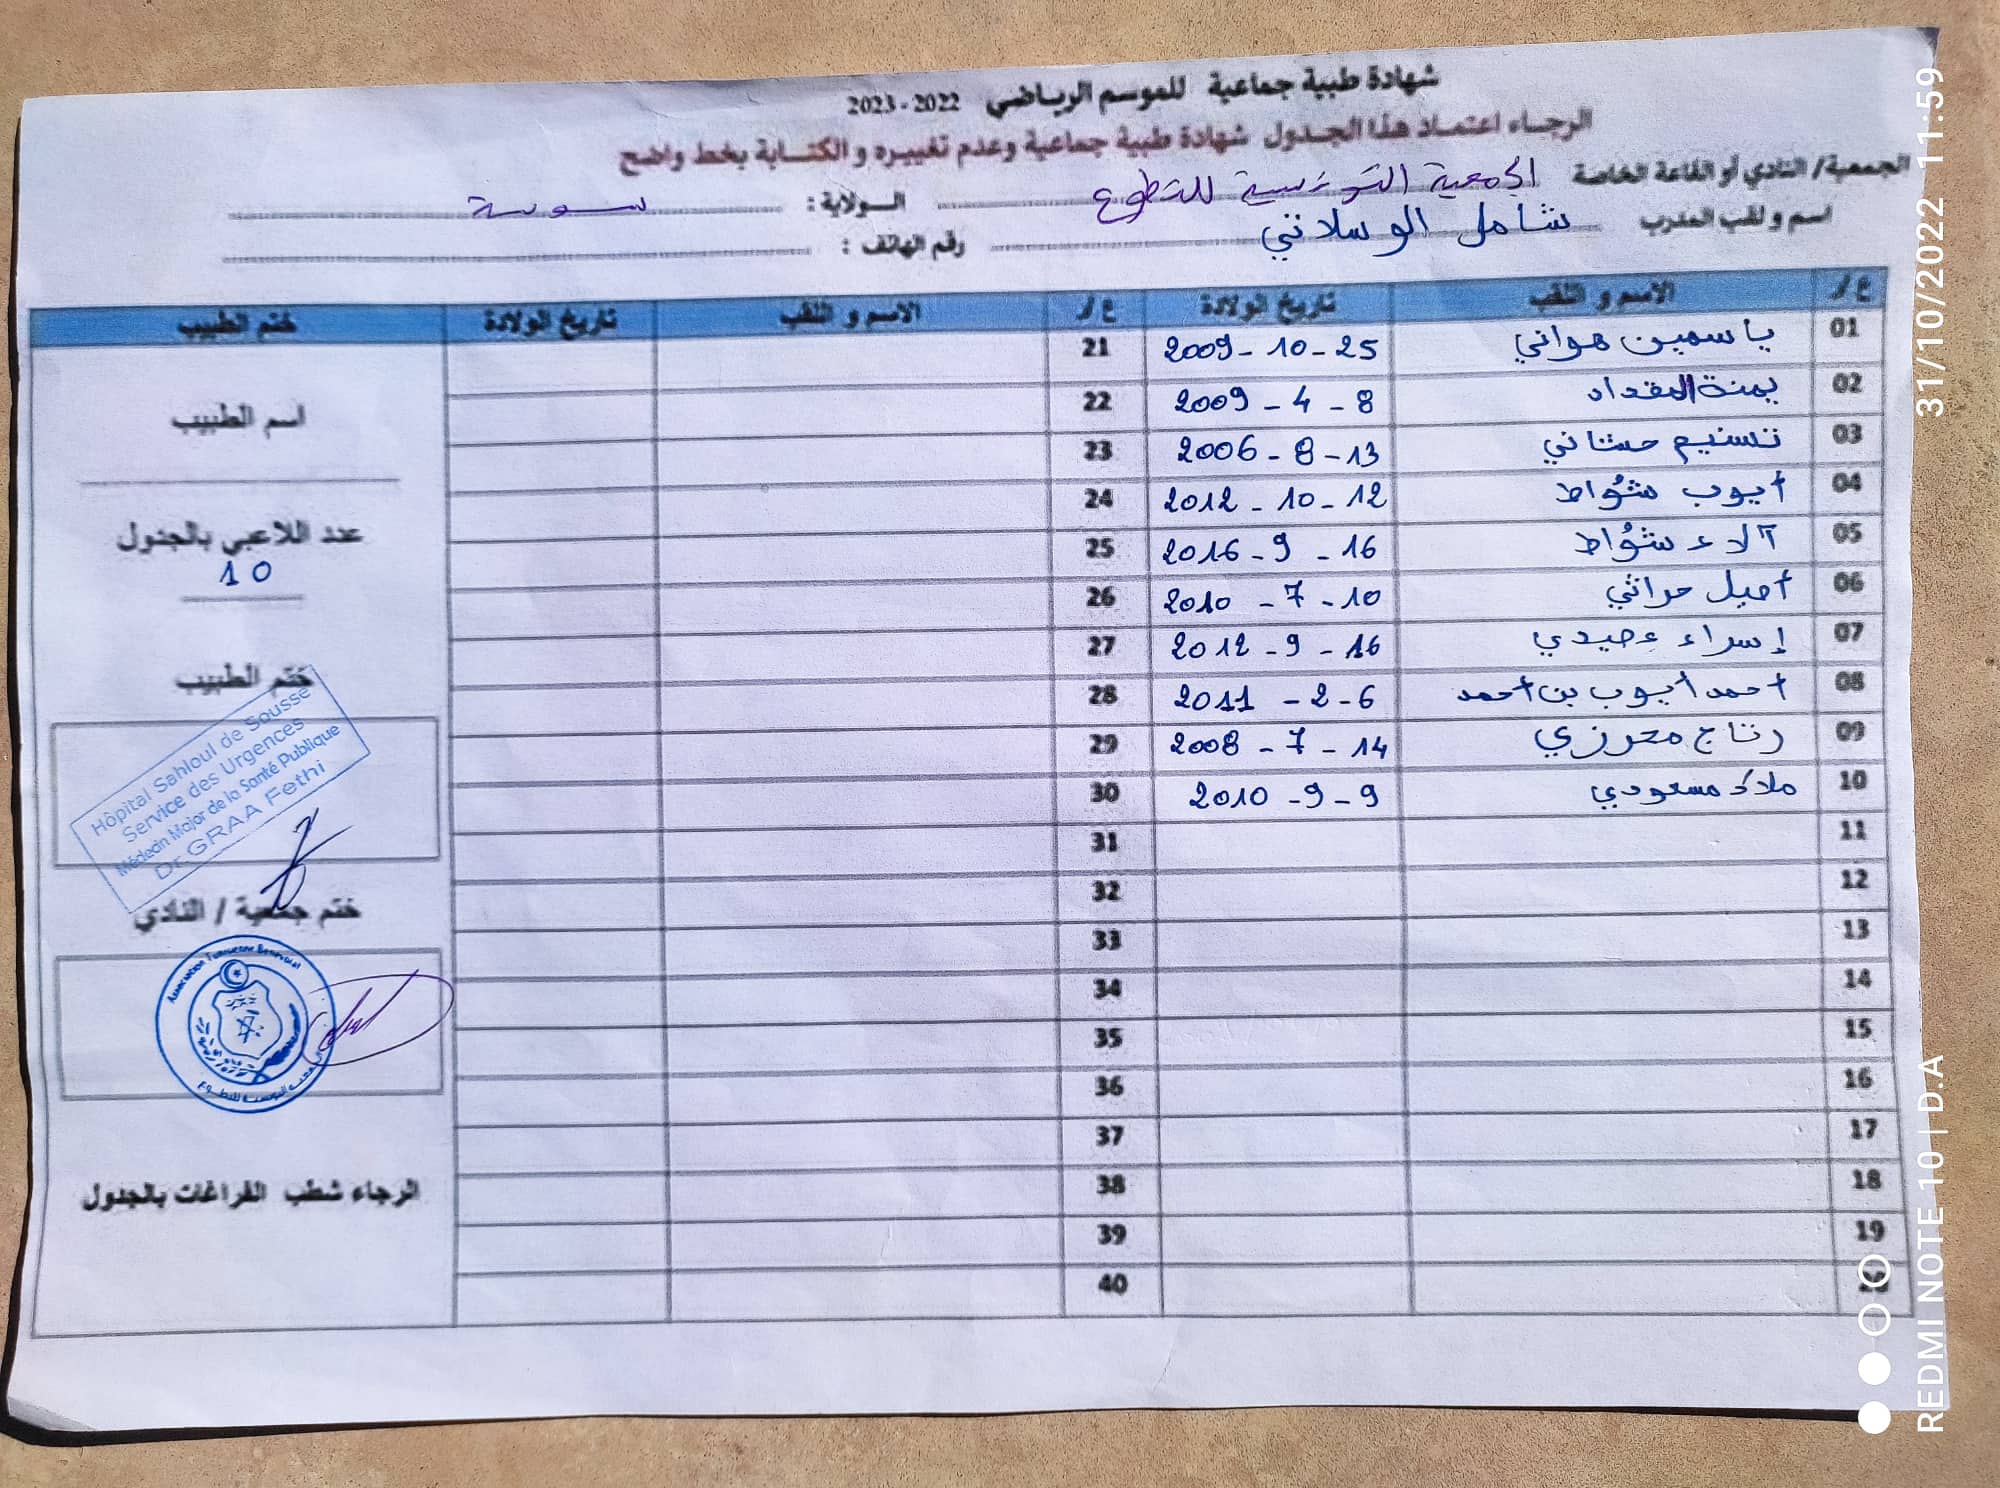 شهادة طبية جماعية للموسم الرياضي 2022 - 2023
الرجاء اعتماد هذا الجدول شهادة طبية جماعية وعدم تغييره و الكتابة بخط واضح
الجمعية/ النادي أو القاعة الخاصة الجمعية التونسية للتطوع الولاية : سوسة
اسم و لقب المدرب شامل الوسلاتي رقم الهاتف :
ع / الاسم و اللقب تاريخ الولادة ع / الاسم و اللقب تاريخ الولادة ختم الطبيب
01 ياسمين هواني 2009 - 10 - 25 21
02 يمنة المقداد 2009 - 4 - 8 22
03 تسنيم حشاني 2006 - 8 - 13 23
04 أيوب شواط 2012 - 10 - 12 24
05 آلاء شواط 2016 - 9 - 16 25
06 أميل حراثي 2010 - 7 - 10 26
07 إسراء عبيدي 2012 - 9 - 16 27
08 أحمد أيوب بن أحمد 2011 - 2 - 6 28
09 رتاج محرزي 2008 - 7 - 14 29
10 ملاك مسعودي 2010 - 9 - 9 30
11 31
12 32
13 33
14 34
15 35
16 36
17 37
18 38
19 39
20 40
اسم الطبيب
عدد اللاعبي بالجدول
10
ختم الطبيب
Hôpital Sahloul de Sousse
Service des Urgences
Médecin Major de la Santé Publique
Dr. GRAA Fethi
ختم جمعية / النادي
Association Tunisienne Bénévolat
الجمعية التونسية للتطوع
الرجاء شطب الفراغات بالجدول
31/10/2022 11:59
REDMI NOTE 10 | D.A